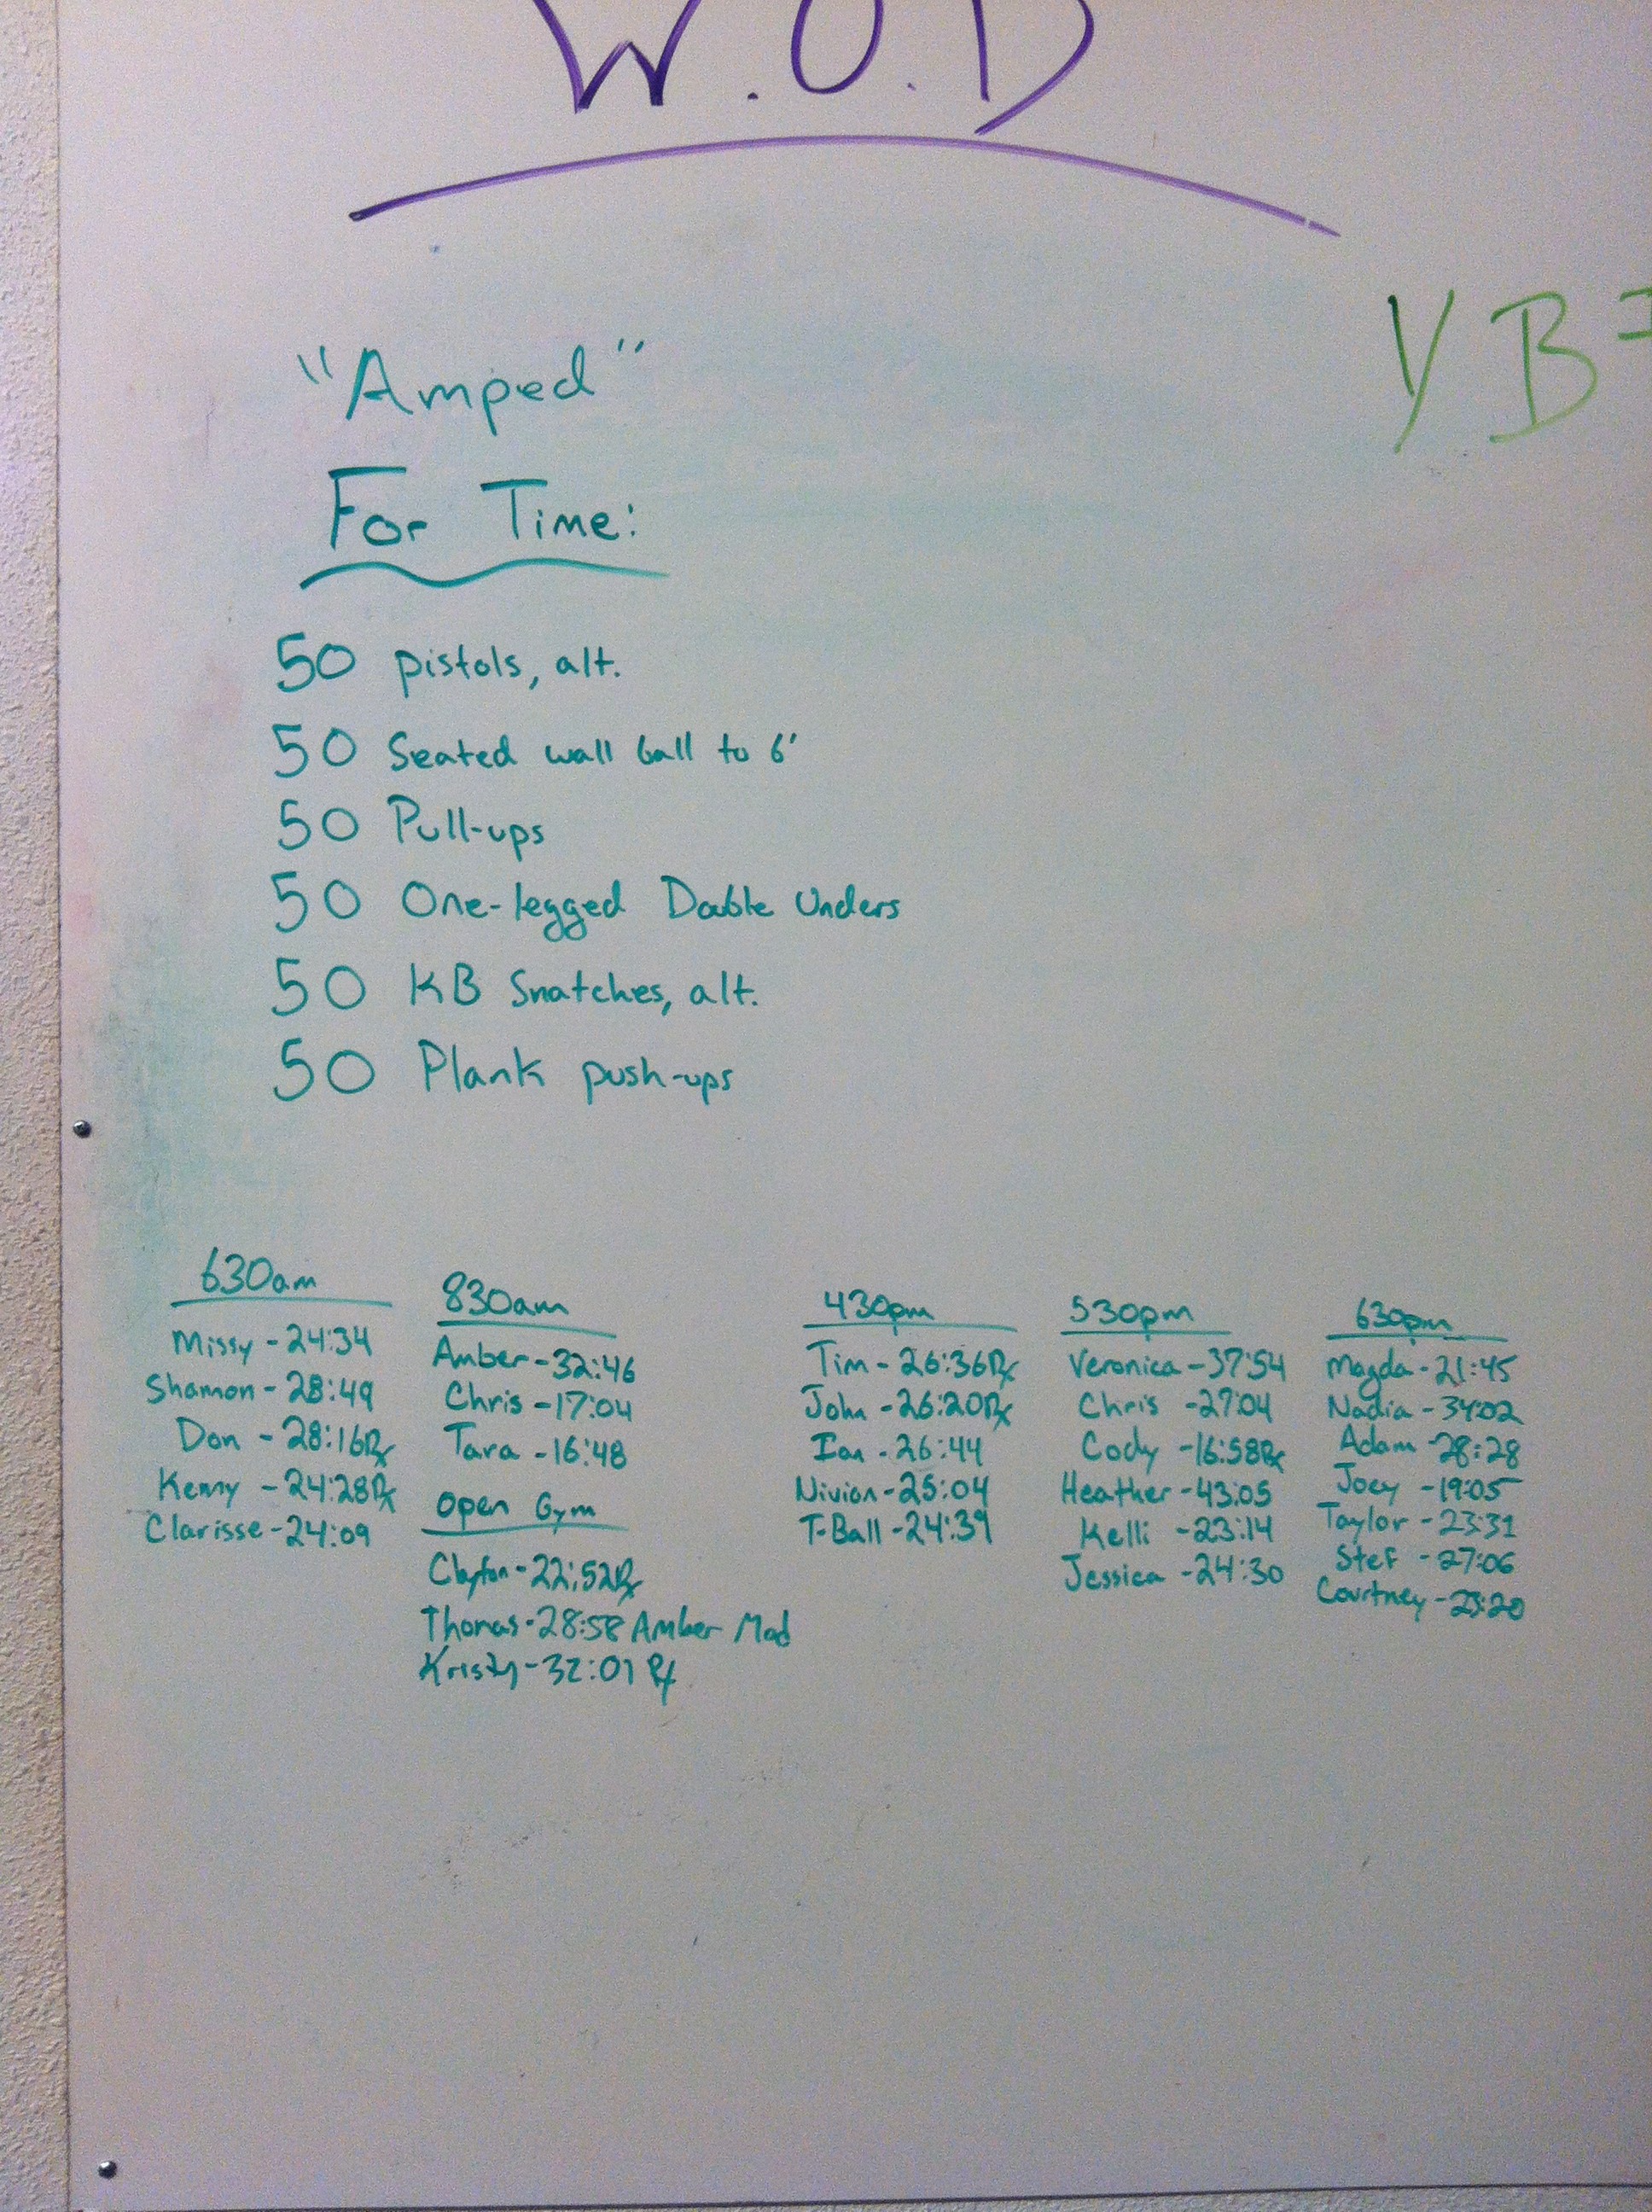 W.O.D
YB
"Amped"
For Time:
50 pistols, alt.
50 Seated wall ball to 6'
50 Pull-ups
50 One-legged Double Unders
50 KB Snatches, alt.
50 Plank push-ups
630am
Missy - 24:34
Shannon - 28:49
Don - 28:16Rx
Kenny - 24:28Rx
Clarisse - 24:09
830am
Amber - 32:46
Chris - 17:04
Tara - 16:48
Open Gym
Clayton - 22:52Rx
Thomas - 28:58 Amber Mod
Kristy - 32:01 Rx
430pm
Tim - 26:36Rx
John - 26:20Rx
Ian - 26:44
Nivian - 25:04
T-Ball - 24:39
530pm
Veronica - 37:54
Chris - 27:04
Cody - 16:58Rx
Heather - 43:05
Kelli - 23:14
Jessica - 24:30
630pm
Magda - 21:45
Nadia - 34:02
Adam - 28:28
Joey - 19:05
Taylor - 23:31
Stef - 27:06
Courtney -